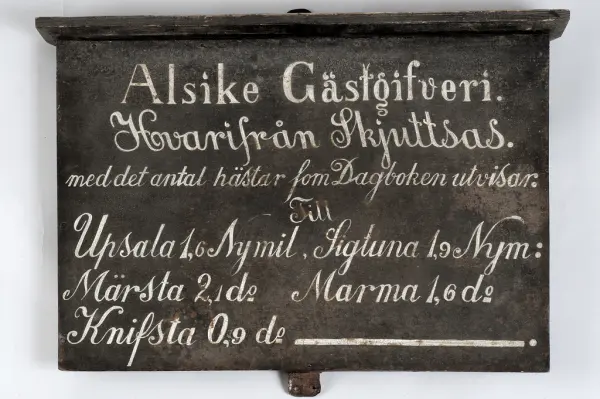 Alsike Gästgifveri.
Hvarifrån Skjuttsas.
med det antal hästar som Dagboken utvisar.
Till
Upsala 1,6 Nymil, Sigtuna 1,9 Nym:
Märsta 2,1 do Marma 1,6 do
Knifsta 0,9 do